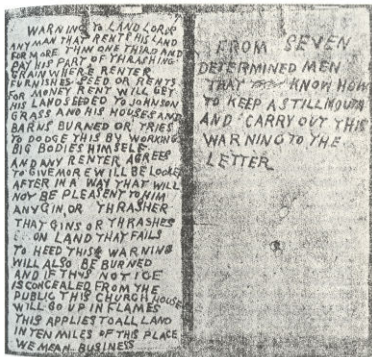 WARNING TO LAND LORDS
ANY MAN THAT RENTS HIS LAND
FOR MORE THAN ONE THIRD AND
PAY HIS PART OF THRASHING
GRAIN WHERE RENTER
FURNISHES SEED OR RENTS
FOR MONEY RENT WILL GET
HIS LAND SEEDED TO JOHNSON
GRASS AND HIS HOUSES AND
BARNS BURNED OR TRIES
TO DODGE THIS BY WORKING
BIG BODIES HIMSELF
AND ANY RENTER AGREES
TO GIVE MORE WILL BE LOOKED
AFTER IN A WAY THAT WILL
NOT BE PLEASENT TO HIM
ANY GIN, OR THRASHER
THAT GINS OR THRASHES
ON LAND THAT FAILS
TO HEED THIS WARNING
WILL ALSO BE BURNED
AND IF THIS NOTICE
IS CONCEALED FROM THE
PUBLIC THIS CHURCH HOUSE
WILL GO UP IN FLAMES
THIS APPLIES TO ALL LAND
IN TEN MILES OF THIS PLACE
WE MEAN BUSINESS
FROM SEVEN
DETERMINED MEN
THAT KNOW HOW
TO KEEP A STILL MOUTH
AND CARRY OUT THIS
WARNING TO THE
LETTER